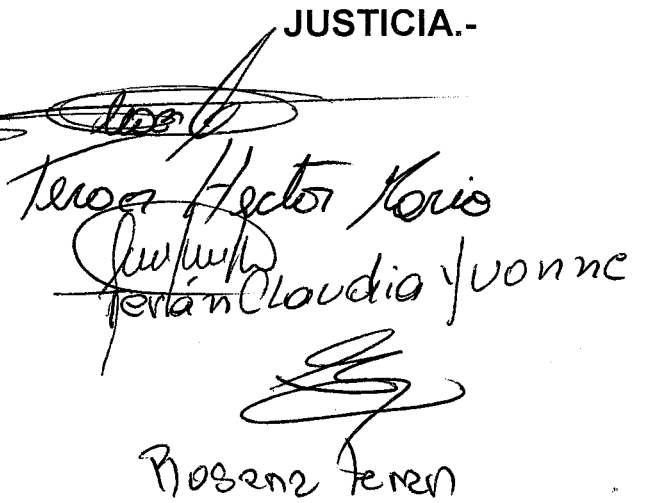 JUSTICIA.-
Teran Hector Mario
Terán Claudia Yvonne
Rosana Teran